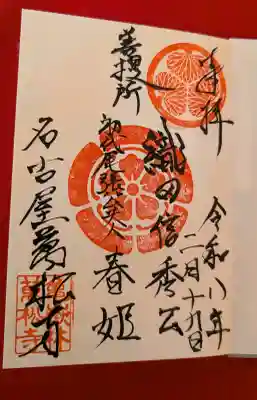 奉拝
令和八年
二月十九日
織田信秀公
菩提所
初代尾張人
春姫
名古屋萬松寺
萬松寺